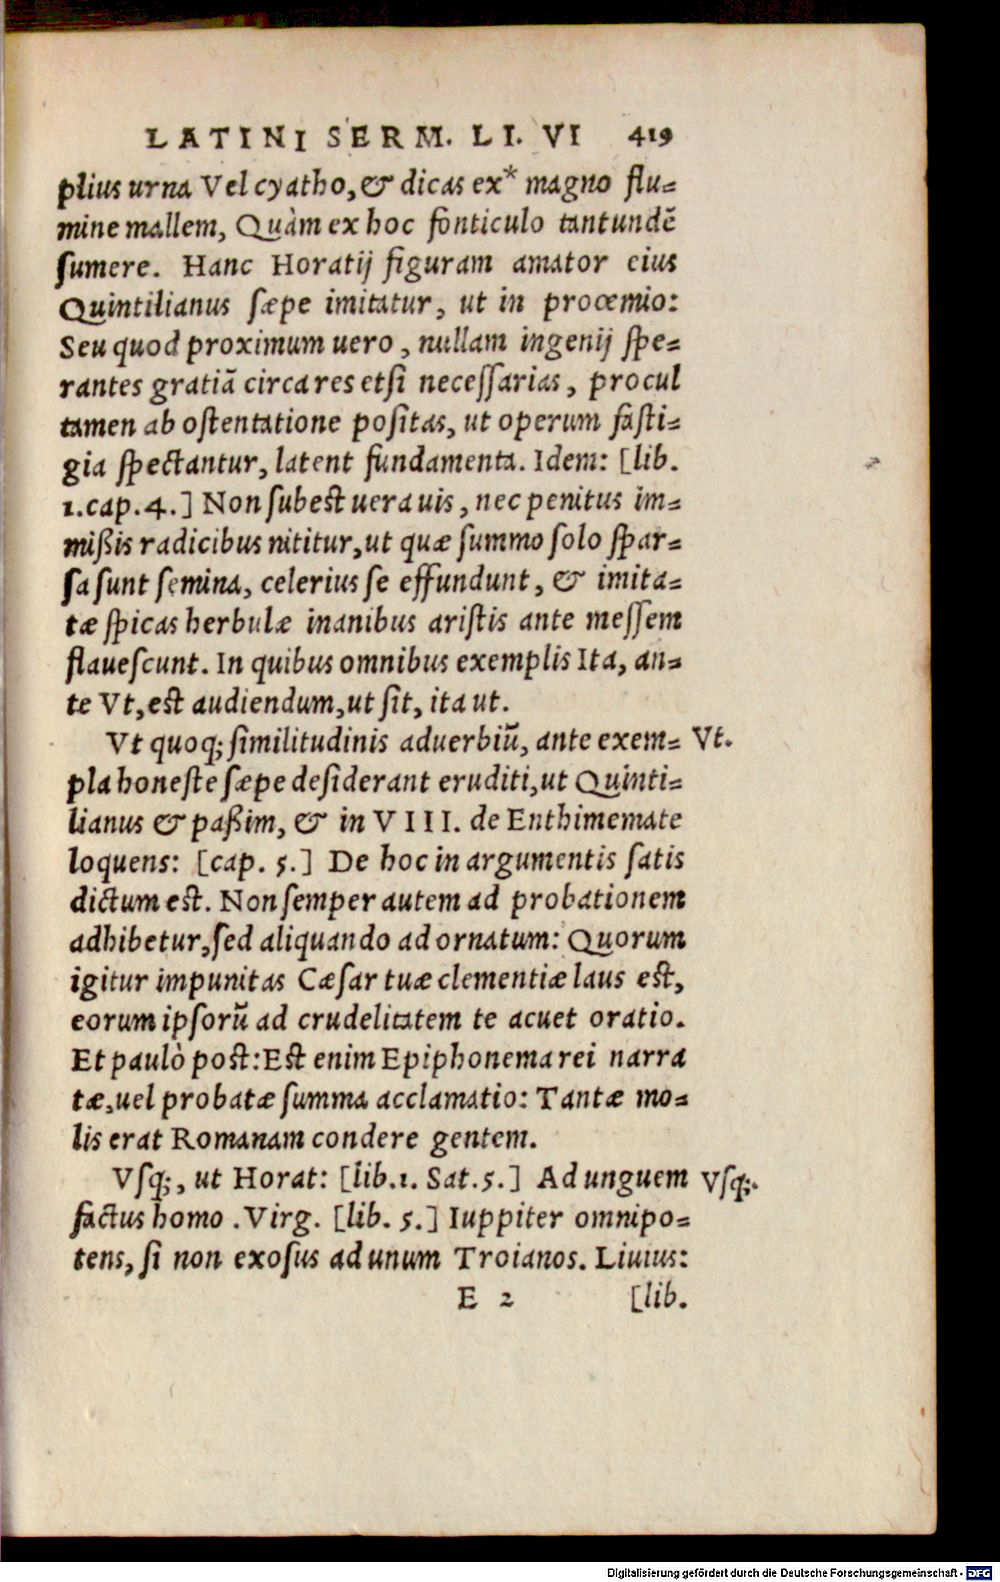 LATINI SERM. LI. VI 419
plius urna Vel cyatho, & dicas ex* magno flu-
mine mallem, Quàm ex hoc fonticulo tantundē
sumere. Hanc Horatij figuram amator eius
Quintilianus sæpe imitatur, ut in proœmio:
Seu quod proximum uero, nullam ingenij spe-
rantes gratiā circa res etsi necessarias, procul
tamen ab ostentatione positas, ut operum fasti-
gia spectantur, latent fundamenta. Idem: [lib.
1.cap.4.] Non subest uera uis, nec penitus im-
mißis radicibus nititur, ut quæ summo solo spar-
sa sunt semina, celerius se effundunt, & imita-
tæ spicas herbulæ inanibus aristis ante messem
flauescunt. In quibus omnibus exemplis Ita, an-
te Vt, est audiendum, ut sit, ita ut.
Vt quoq; similitudinis aduerbiū, ante exem- Vt.
pla honeste sæpe desiderant eruditi, ut Quinti-
lianus & paßim, & in VIII. de Enthimemate
loquens: [cap. 5.] De hoc in argumentis satis
dictum est. Non semper autem ad probationem
adhibetur, sed aliquando ad ornatum: Quorum
igitur impunitas Cæsar tuæ clementiæ laus est,
eorum ipsorū ad crudelitatem te acuet oratio.
Et paulò post: Est enim Epiphonema rei narra
tæ, uel probatæ summa acclamatio: Tantæ mo-
lis erat Romanam condere gentem.
Vsq;, ut Horat: [lib.1. Sat.5.] Ad unguem Vsq;.
factus homo. Virg. [lib. 5.] Iuppiter omnipo-
tens, si non exosus ad unum Troianos. Liuius:
E 2 [lib.
Digitalisierung gefördert durch die Deutsche Forschungsgemeinschaft - DFG